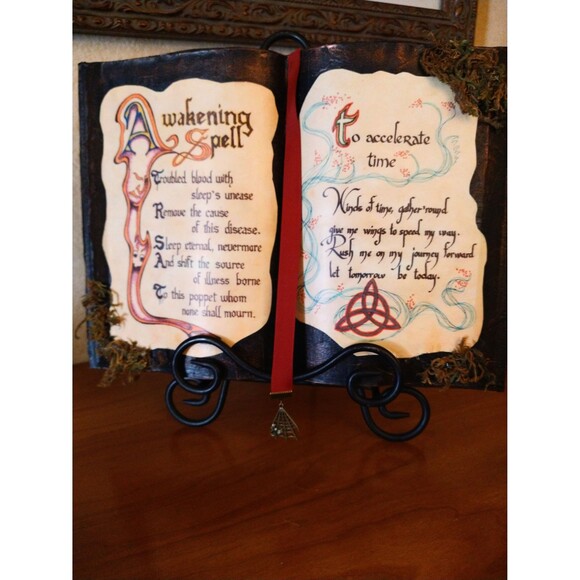 Awakening
Spell
Troubled blood with
sleep's unease
Remove the cause
of this disease.
Sleep eternal, nevermore
And shift the source
of illness borne
To this poppet whom
none shall mourn.
to accelerate
time
Winds of time, gather 'round
give me wings to speed my way.
Rush me on my journey forward
let tomorrow be today.